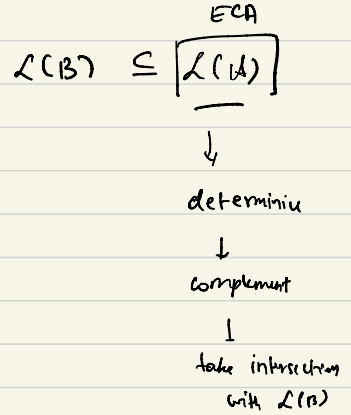 ECA
L(B) ⊆ L(A)
↓
determinize
↓
complement
↓
take intersection
with L(B)